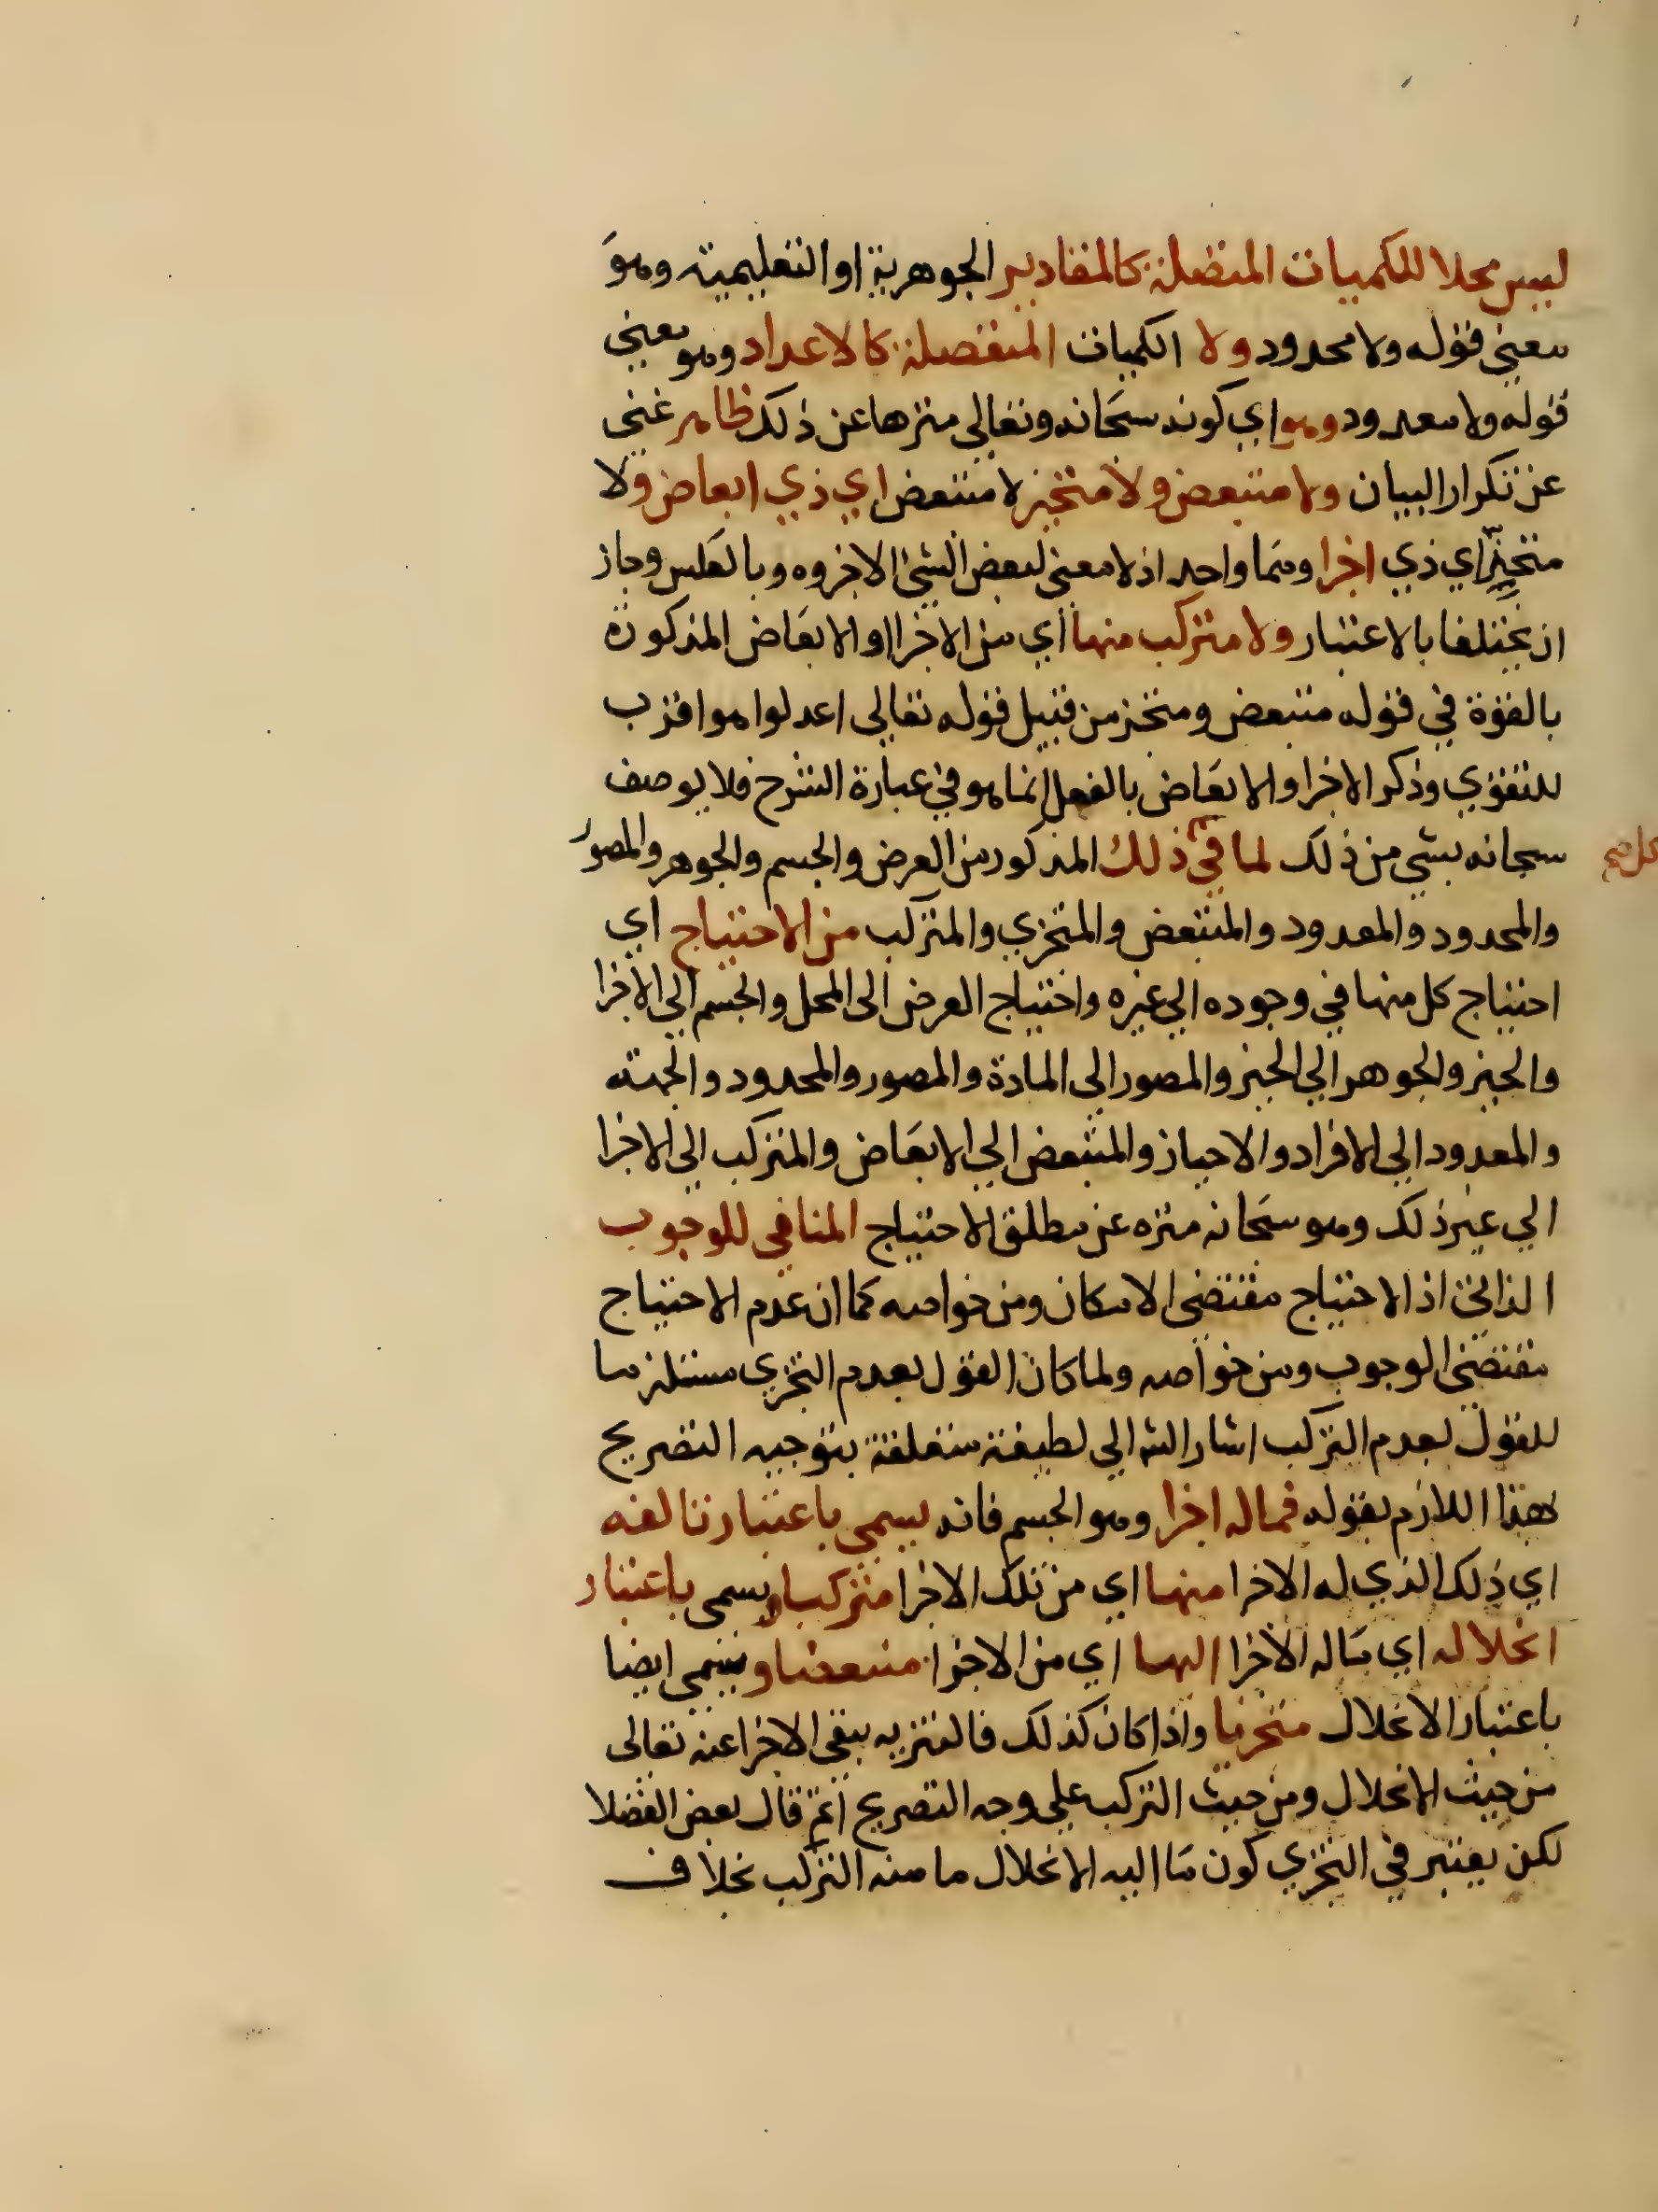 ليس محلا للكميات المتصلة كالمقادير الجوهرية او التعليمية وهو
معنى قوله ولا محدود ولا الكميات المنفصلة كالاعداد وهو معنى
قوله ولا معدود وهو اي كونه سبحانه وتعالى منزها عن ذلك ظاهر غنى
عن تكرار البيان ولا متبعض ولا متجز لا متبعض اي ذي ابعاض ولا
متجز اي ذي اجزا وهما واحد اذ لا معنى لبعض الشئ الا جزوه وبالعكس وجاز
ان يختلفا بالاعتبار ولا متركب منها اي من الاجزا او الابعاض المذكورة
بالقوة في قوله متبعض ومتجز من قبيل قوله تعالى اعدلوا هو اقرب
للتقوي وذكر الاجزا والابعاض بالفعل انما هو في عبارة الشرح فلا يوصف
سبحانه بشي من ذلك لما في ذلك المذكور من العرض والجسم والجوهر والمصور
والمحدود والمعدود والمتبعض والمتجزي والمتركب من الاحتياج اي
احتياج كل منها في وجوده الي غيره واحتياج العرض الى المحل والجسم الي الاجزا
والحيز والجوهر الي الحيز والمصور الى المادة والمصور والمحدود والجهته
والمعدود الي الافراد والاحياز والمتبعض الي الابعاض والمتركب الى الاجزا
الي غير ذلك وهو سبحانه منزه عن مطلق الاحتياج المنافي للوجوب
الذاتي اذ الاحتياج مقتضى الامكان ومن خواصه كما ان عدم الاحتياج
مقتضى الوجوب ومن خواصه ولما كان القول بعدم التجزي مستلزما
للقول بعدم التركب اشار الش الي لطيفة متعلقة بتوجيه التصريح
بهذا اللازم بقوله فما له اجزا وهو الجسم فانه يسمى باعتبار تالفه
اي ذلك الذي له الاجزا منها اي من تلك الاجزا متركبا ويسمى باعتبار
انحلاله اي ما له الاجزا اليها اي من الاجزا متبعضا ويسمى ايضا
باعتبار الانحلال متجزيا واذا كان كذلك فالتنزيه بنفي الاجزا عنه تعالى
من حيث الانحلال ومن حيث التركب على وجه التصريح اتم قال بعض الفضلا
لكن يعتبر في التجزي كون ما اليه الانحلال ما منه التركب بخلاف